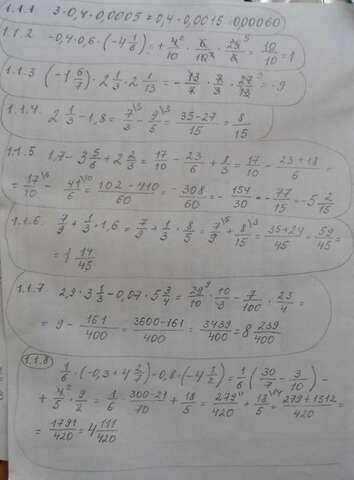 1.1.1 3·0,4·0,0005 = 0,4·0,0015 = 0,00060
1.1.2 -0,4·0,6·(-4 1/6) = + 4/10 · 6/10 · 25/6 = 10/10 = 1
1.1.3 (-1 6/7)·2 1/3·2 1/13 = - 13/7 · 7/3 · 27/13 = -9
1.1.4 2 1/3 - 1,8 = 7/3 - 9/5 = 35-27/15 = 8/15
1.1.5 1,7 - 3 5/6 + 2 2/3 = 17/10 - 23/6 + 8/3 = 17/10 - 23+18/6 =
= 17/10 - 41/6 = 102-410/60 = - 308/60 = - 154/30 = - 77/15 = -5 2/15
1.1.6 7/9 + 1/3 · 1,6 = 7/9 + 1/3 · 8/5 = 7/9 + 8/15 = 35+24/45 = 59/45 =
= 1 14/45
1.1.7 2,7·3 1/3 - 0,07·5 3/4 = 27/10 · 10/3 - 7/100 · 23/4 =
= 9 - 161/400 = 3600-161/400 = 3439/400 = 8 239/400
1.1.8
1/6 · (-0,3 + 4 2/7) - 0,8·(-4 1/2) = 1/6 (30/7 - 3/10) -
+ 4/5 · 9/2 = 1/6 · 300-21/70 + 18/5 = 279/420 + 18/5 = 279+1512/420 =
= 1791/420 = 4 111/420